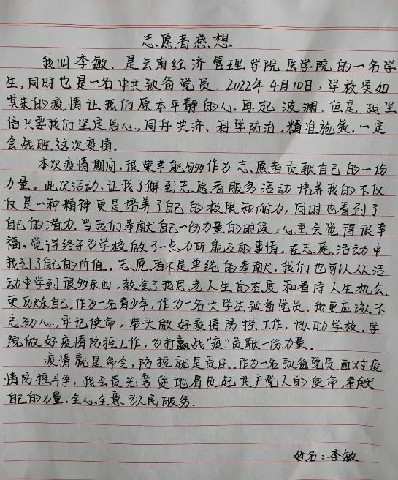 志愿者感想
我叫李敏,是云南经济管理学院医学院的一名学
生,同时也是一名中共预备党员。2022年4月10日,学校突如
其来的疫情让我们原本平静的心,再起波澜,但是,我坚
信只要我们坚定信心,同舟共济、科学防治,精准施策,一定
会战胜这次疫情。
本次疫情期间,很荣幸能够作为志愿者贡献自己的一份
力量。此次活动,让我了解到志愿者服务活动培养我的不仅
仅是一种精神更是培养了自己的能力,同时也看到了
自己的潜力,当我们奉献自己一份力量的时候,心里会觉得很幸
福。觉得终于为学校做了一点力所能及的事情,在志愿活动中
找到了自己的价值。志愿者不是单纯的奉献,我们也可以从活
动中学到很多东西,教会了我
更加
自己。作为一名青少年,作为一名大学生预备党员,我更应该不
忘初心,牢记使命,带头做好疫情防控工作,协助学校、学
院做好疫情防控工作,为打赢战“疫”贡献一份力量。
疫情就是命令,防控就是责任。作为一名预备党员面对疫
情防控斗争,我会义无反顾地肩负起共产党人的使命,奉献
自己的力量,全心全意为人民服务。
姓名:李敏